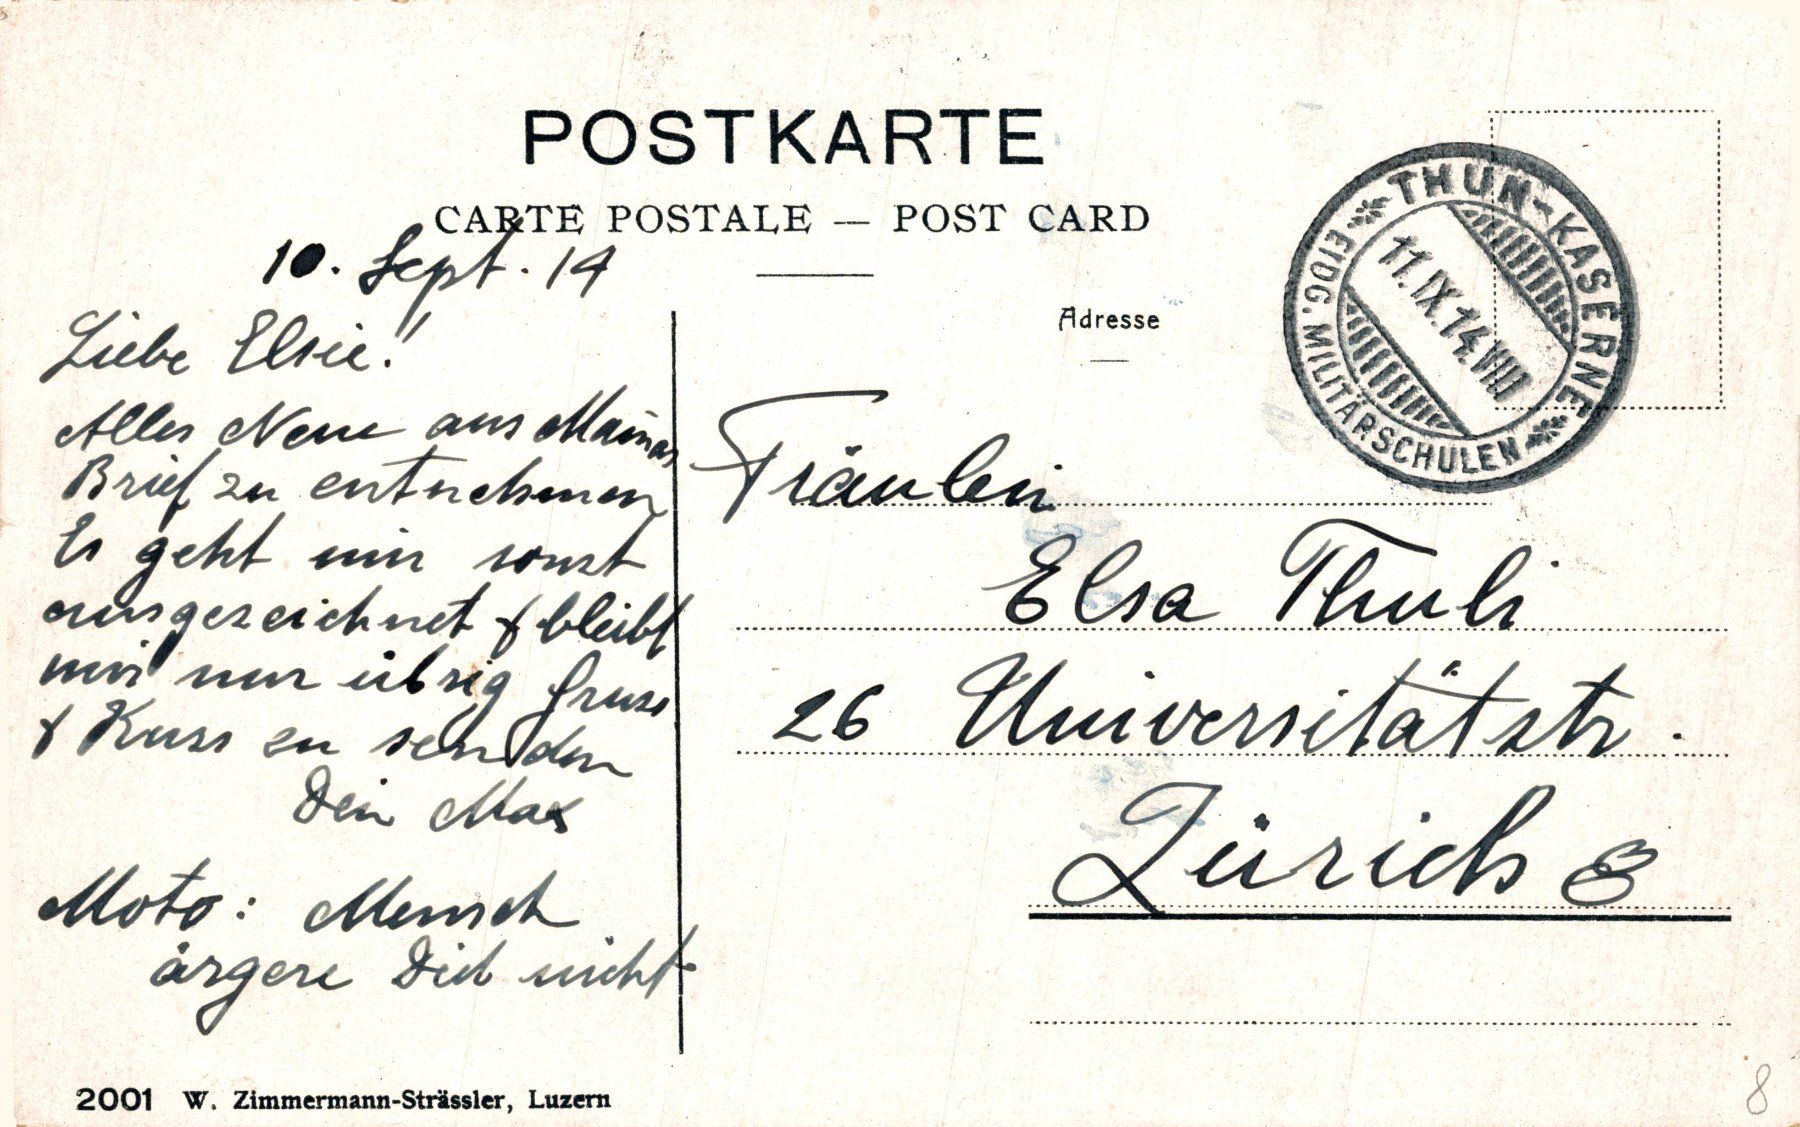 POSTKARTE
CARTE POSTALE — POST CARD
10. Sept. 14
Liebe Elsie!
Alles Neue aus Mamas
Brief zu entnehmen
Es geht mir sonst
ausgezeichnet & bleibt
mir nur übrig Gruss
& Kuss zu senden
Dein Max
Moto: Mensch
ärgere Dich nicht
2001 W. Zimmermann-Strässler, Luzern
Adresse
THUN-KASERNE
EIDG. MILITÄRSCHULEN
11.IX.14.VIII
Fräulein
Elsa Thuli
26 Universitätstr.
Zürich 6
8